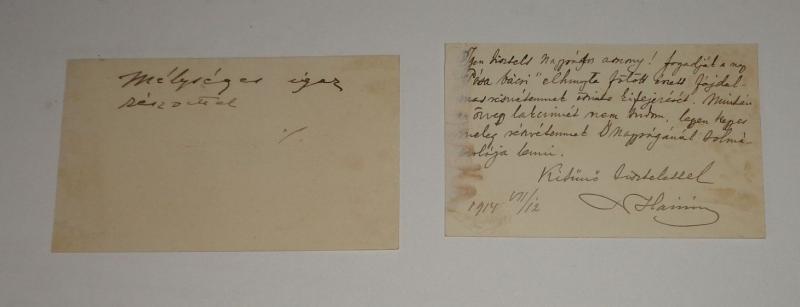 Mélységes igaz
részvéttel
Igen tisztelt Nagyságos asszony! fogadják a nagy
"Pósa bácsi" elhunyta fölött érzett fájdal-
mas részvétemnek őszinte kifejezését. Miután
özvegy lakcímét nem tudom, legyen kegyes
meleg részvétemnek Ő Nagyságánál tolmá-
csolója lenni.
Kitünő tisztelettel
1914 VII/12